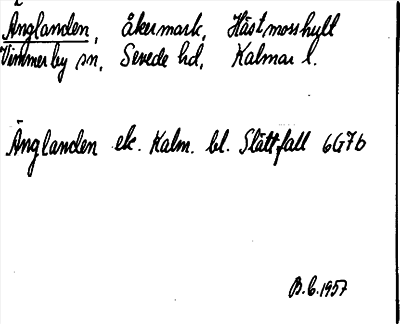 Änglanden, åkermark, Hästmosshyll
Vimmerby sn, Sevede hd, Kalmar l.
Änglanden ek. Kalm. bl. Slättfall 6G7b
B.C.1957